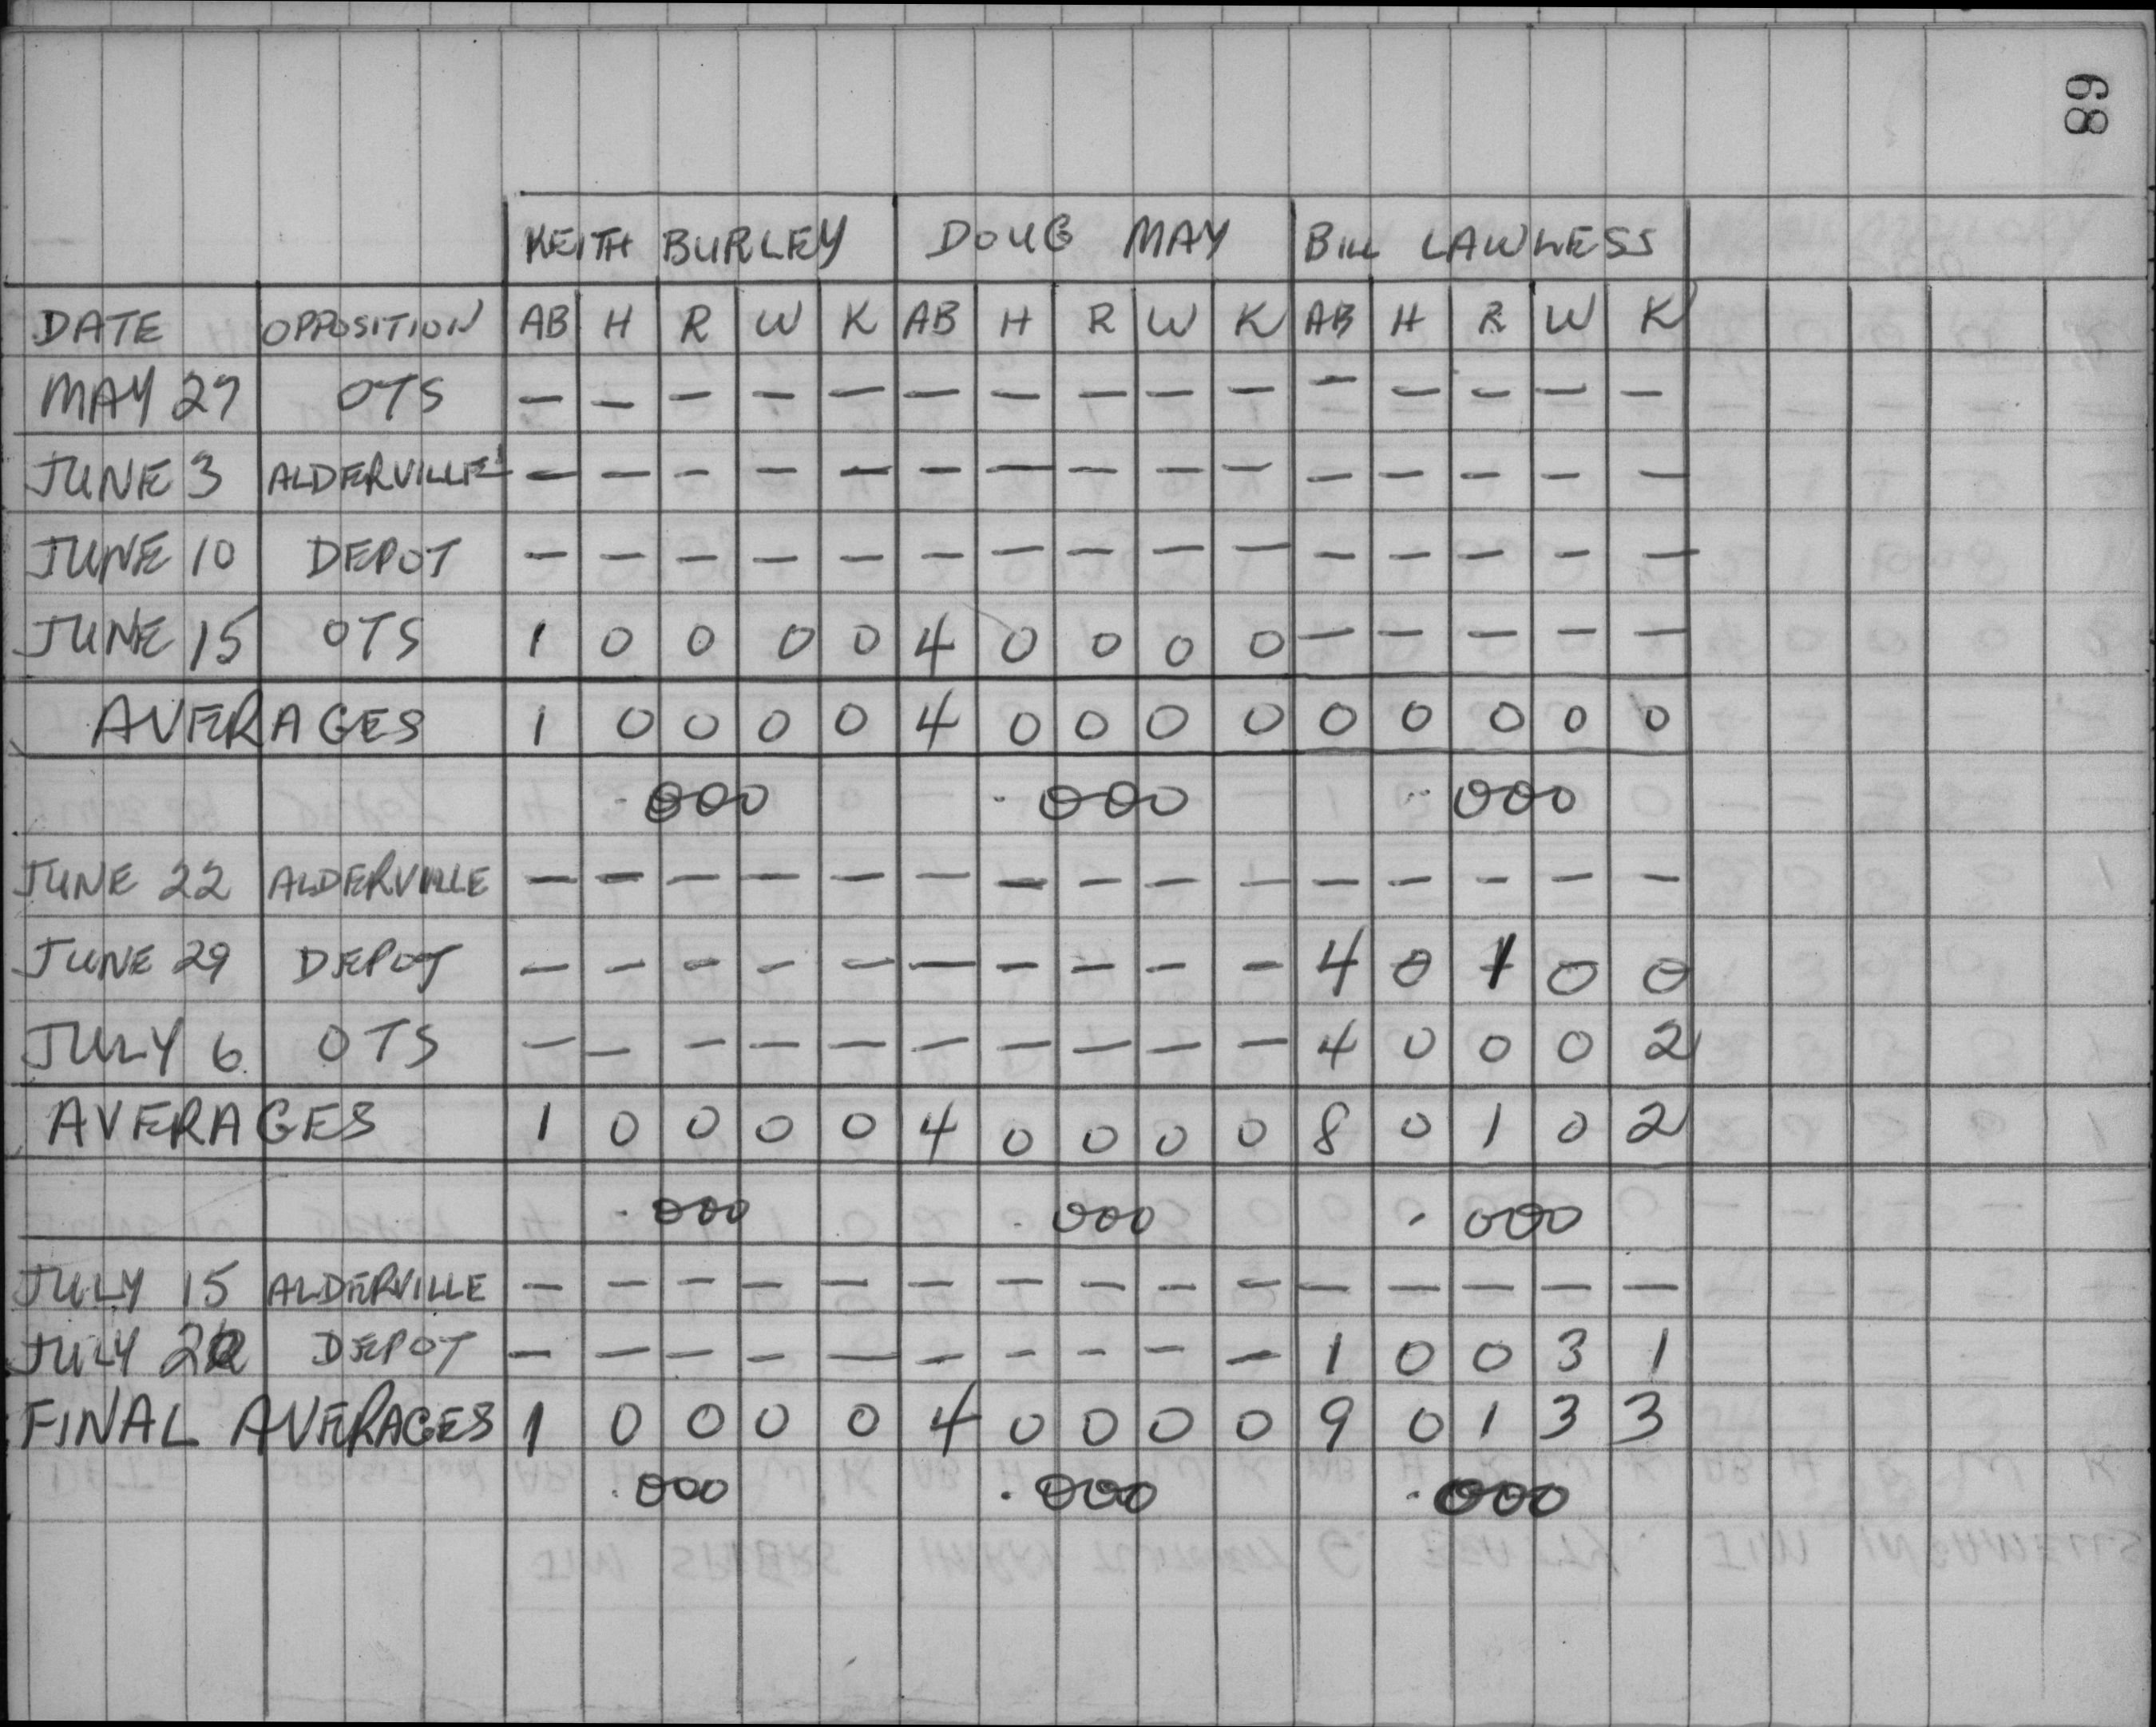 89
KEITH BURLEY DOUG MAY BILL LAWLESS
DATE OPPOSITION AB H R W K AB H R W K AB H R W K
MAY 27 OTS — — — — — — — — — — — — — — —
JUNE 3 ALDERVILLE — — — — — — — — — — — — — — —
JUNE 10 DEPOT — — — — — — — — — — — — — — —
JUNE 15 OTS 1 0 0 0 0 4 0 0 0 0 — — — — —
AVERAGES 1 0 0 0 0 4 0 0 0 0 0 0 0 0 0
.000 .000 .000
JUNE 22 ALDERVILLE — — — — — — — — — — — — — — —
JUNE 29 DEPOT — — — — — — — — — — 4 0 1 0 0
JULY 6 OTS — — — — — — — — — — 4 0 0 0 2
AVERAGES 1 0 0 0 0 4 0 0 0 0 8 0 1 0 2
.000 .000 .000
JULY 15 ALDERVILLE — — — — — — — — — — — — — — —
JULY DEPOT — — — — — — — — — — 1 0 0 3 1
FINAL AVERAGES 1 0 0 0 0 4 0 0 0 0 9 0 1 3 3
.000 .000 .000